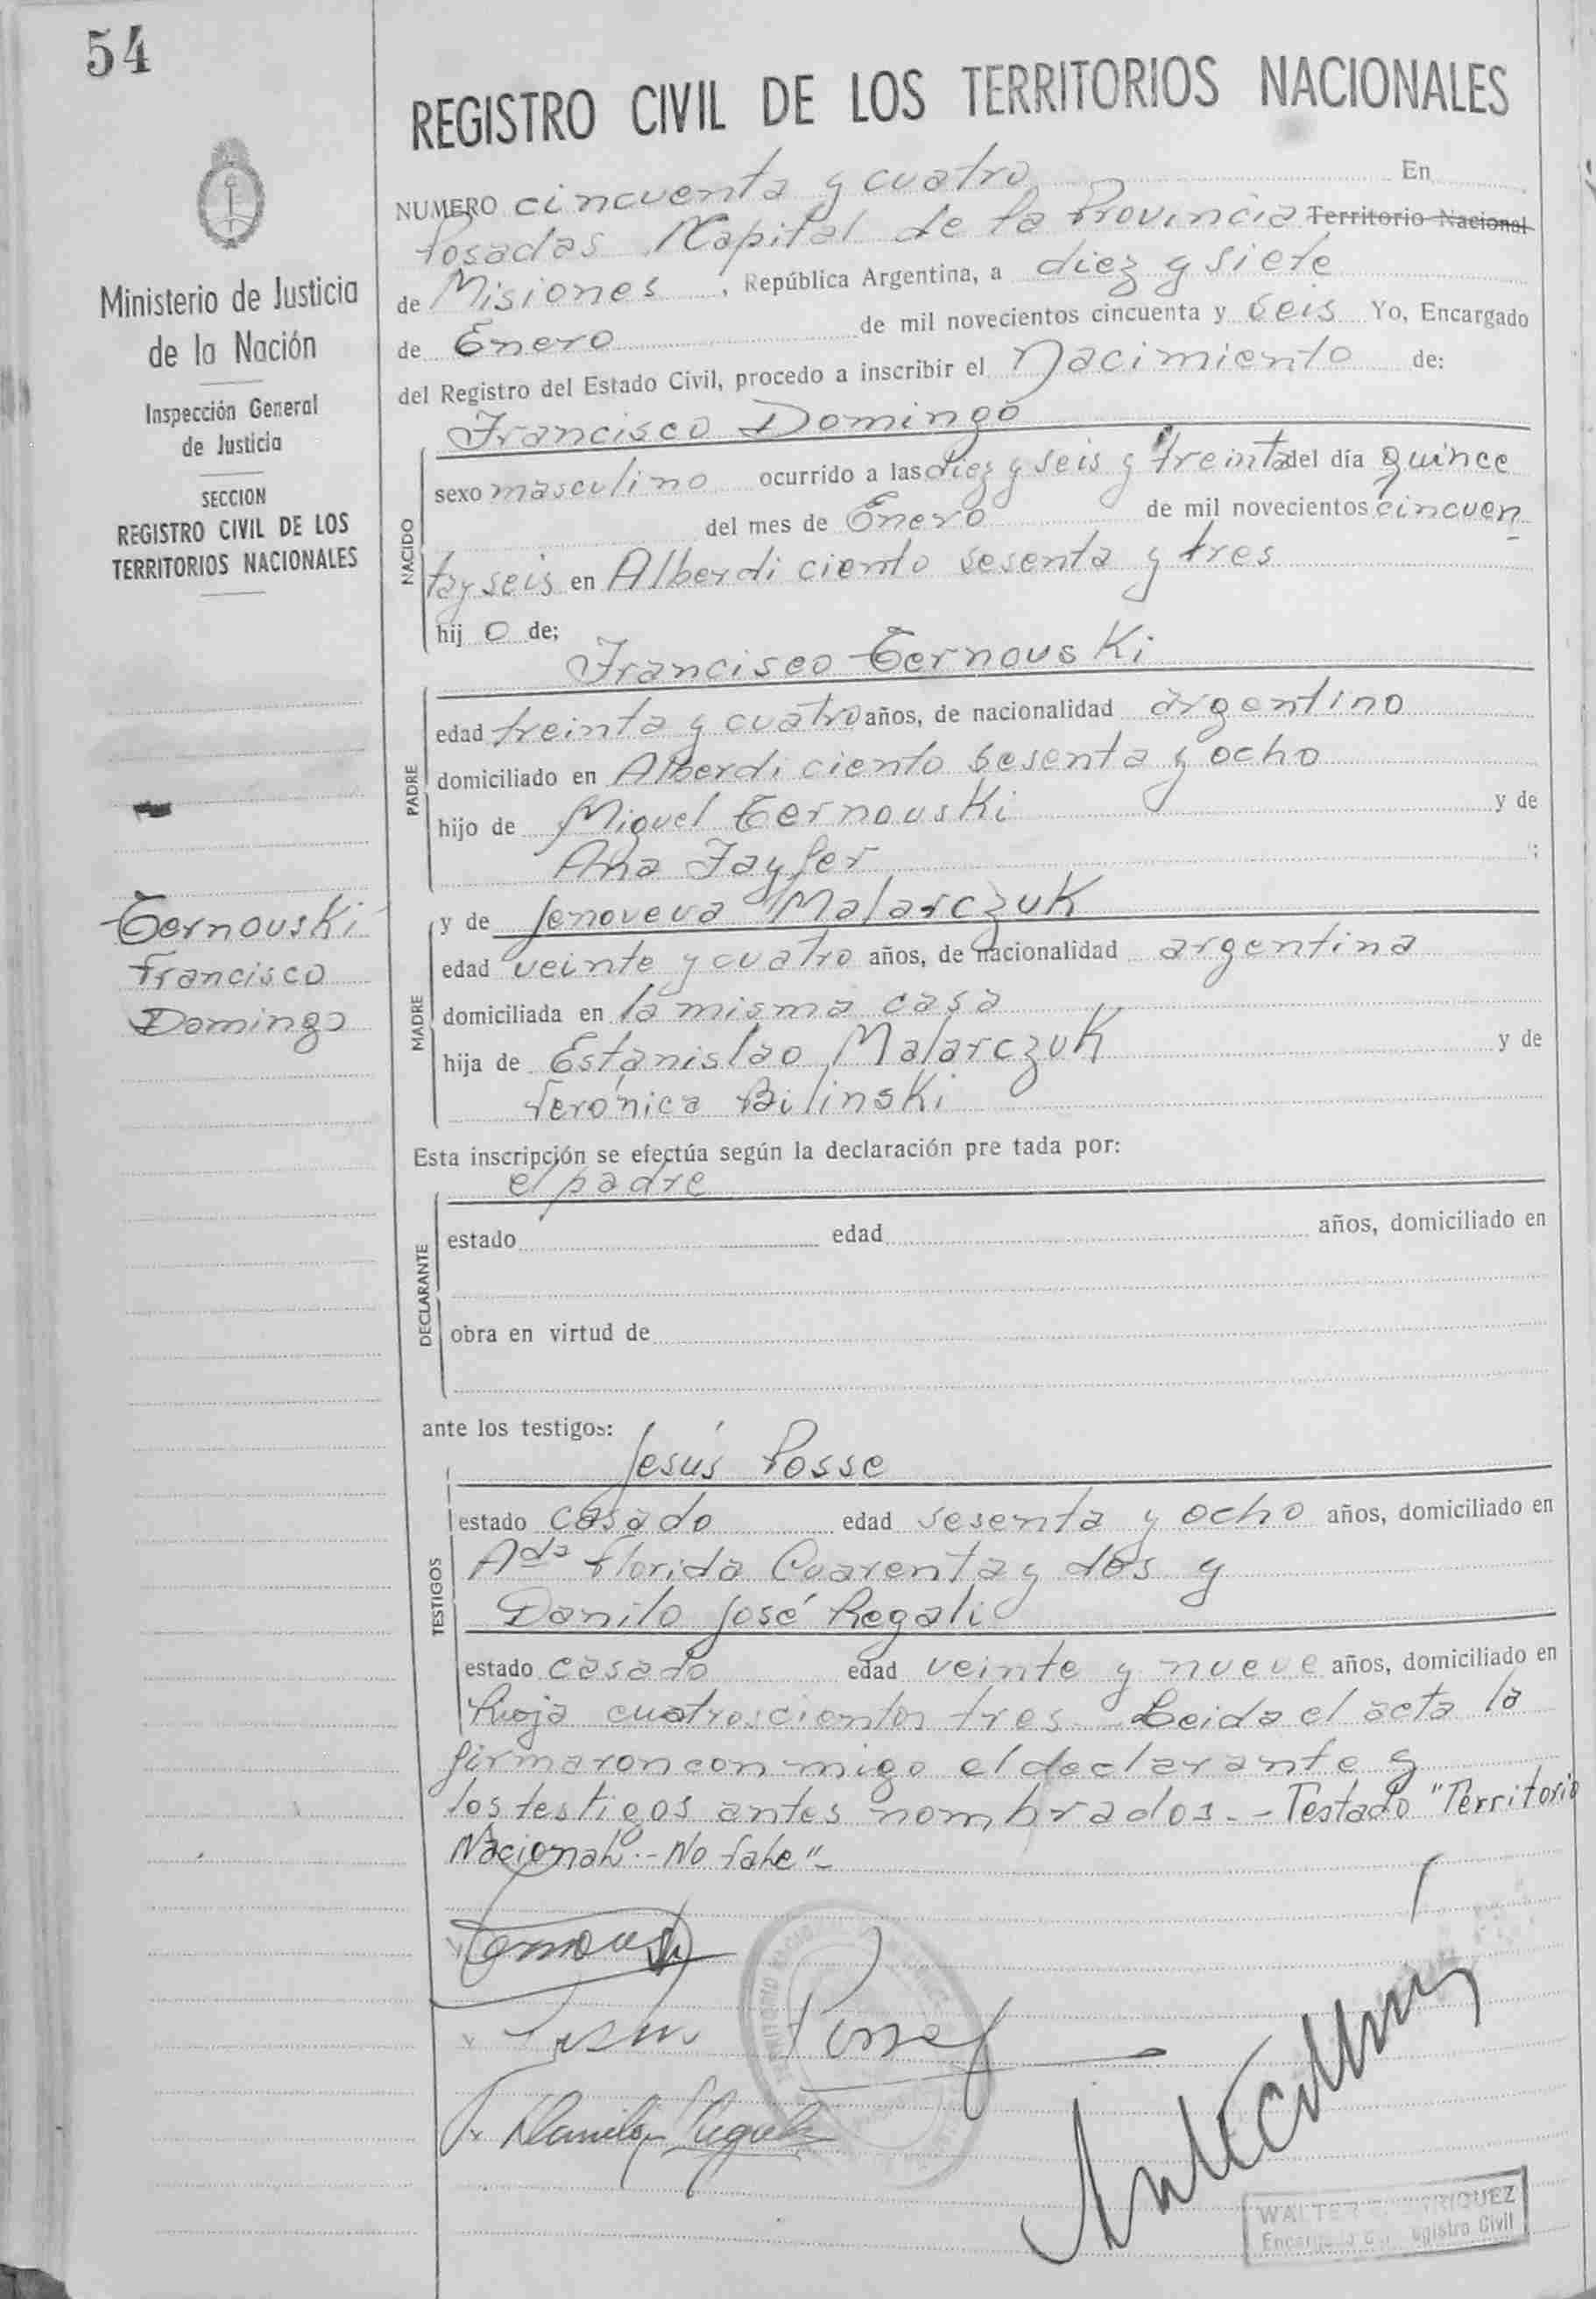 54
REGISTRO CIVIL DE LOS TERRITORIOS NACIONALES
Ministerio de Justicia
de la Nación
Inspección General
de Justicia
SECCION
REGISTRO CIVIL DE LOS
TERRITORIOS NACIONALES
Ternouski
Francisco
Domingo
NUMERO cincuenta y cuatro En
Posadas Capital de la Provincia Territorio Nacional
de Misiones, República Argentina, a diez y siete
de Enero de mil novecientos cincuenta y seis Yo, Encargado
del Registro del Estado Civil, procedo a inscribir el Nacimiento de:
Francisco Domingo
NACIDO
sexo masculino ocurrido a las diez y seis y treinta del día quince
del mes de Enero de mil novecientos cincuen
ta y seis en Alberdi ciento sesenta y tres
hij o de;
Francisco Ternouski
PADRE
edad treinta y cuatro años, de nacionalidad argentino
domiciliado en Alberdi ciento sesenta y ocho
hijo de Miguel Ternouski y de
Ana Fayfer ;
MADRE
y de Jenoveva Malarczuk
edad veinte y cuatro años, de nacionalidad argentina
domiciliada en la misma casa
hija de Estanislao Malarczuk y de
Verónica Bilinski
Esta inscripción se efectúa según la declaración pre tada por:
el padre
DECLARANTE
estado edad años, domiciliado en
obra en virtud de
ante los testigos:
Jesús Posse
TESTIGOS
estado casado edad sesenta y ocho años, domiciliado en
Ada Florida Cuarenta y dos y
Danilo José Regali
estado casado edad veinte y nueve años, domiciliado en
Rioja cuatroscientos tres. Leida el acta la
firmaron conmigo el declarante y
los testigos antes nombrados.- Testado "Territorio
Nacional".- No Vale"-
Ternouski
Jesus Posse
Danilo J Regali
WALTER
Registro Civil